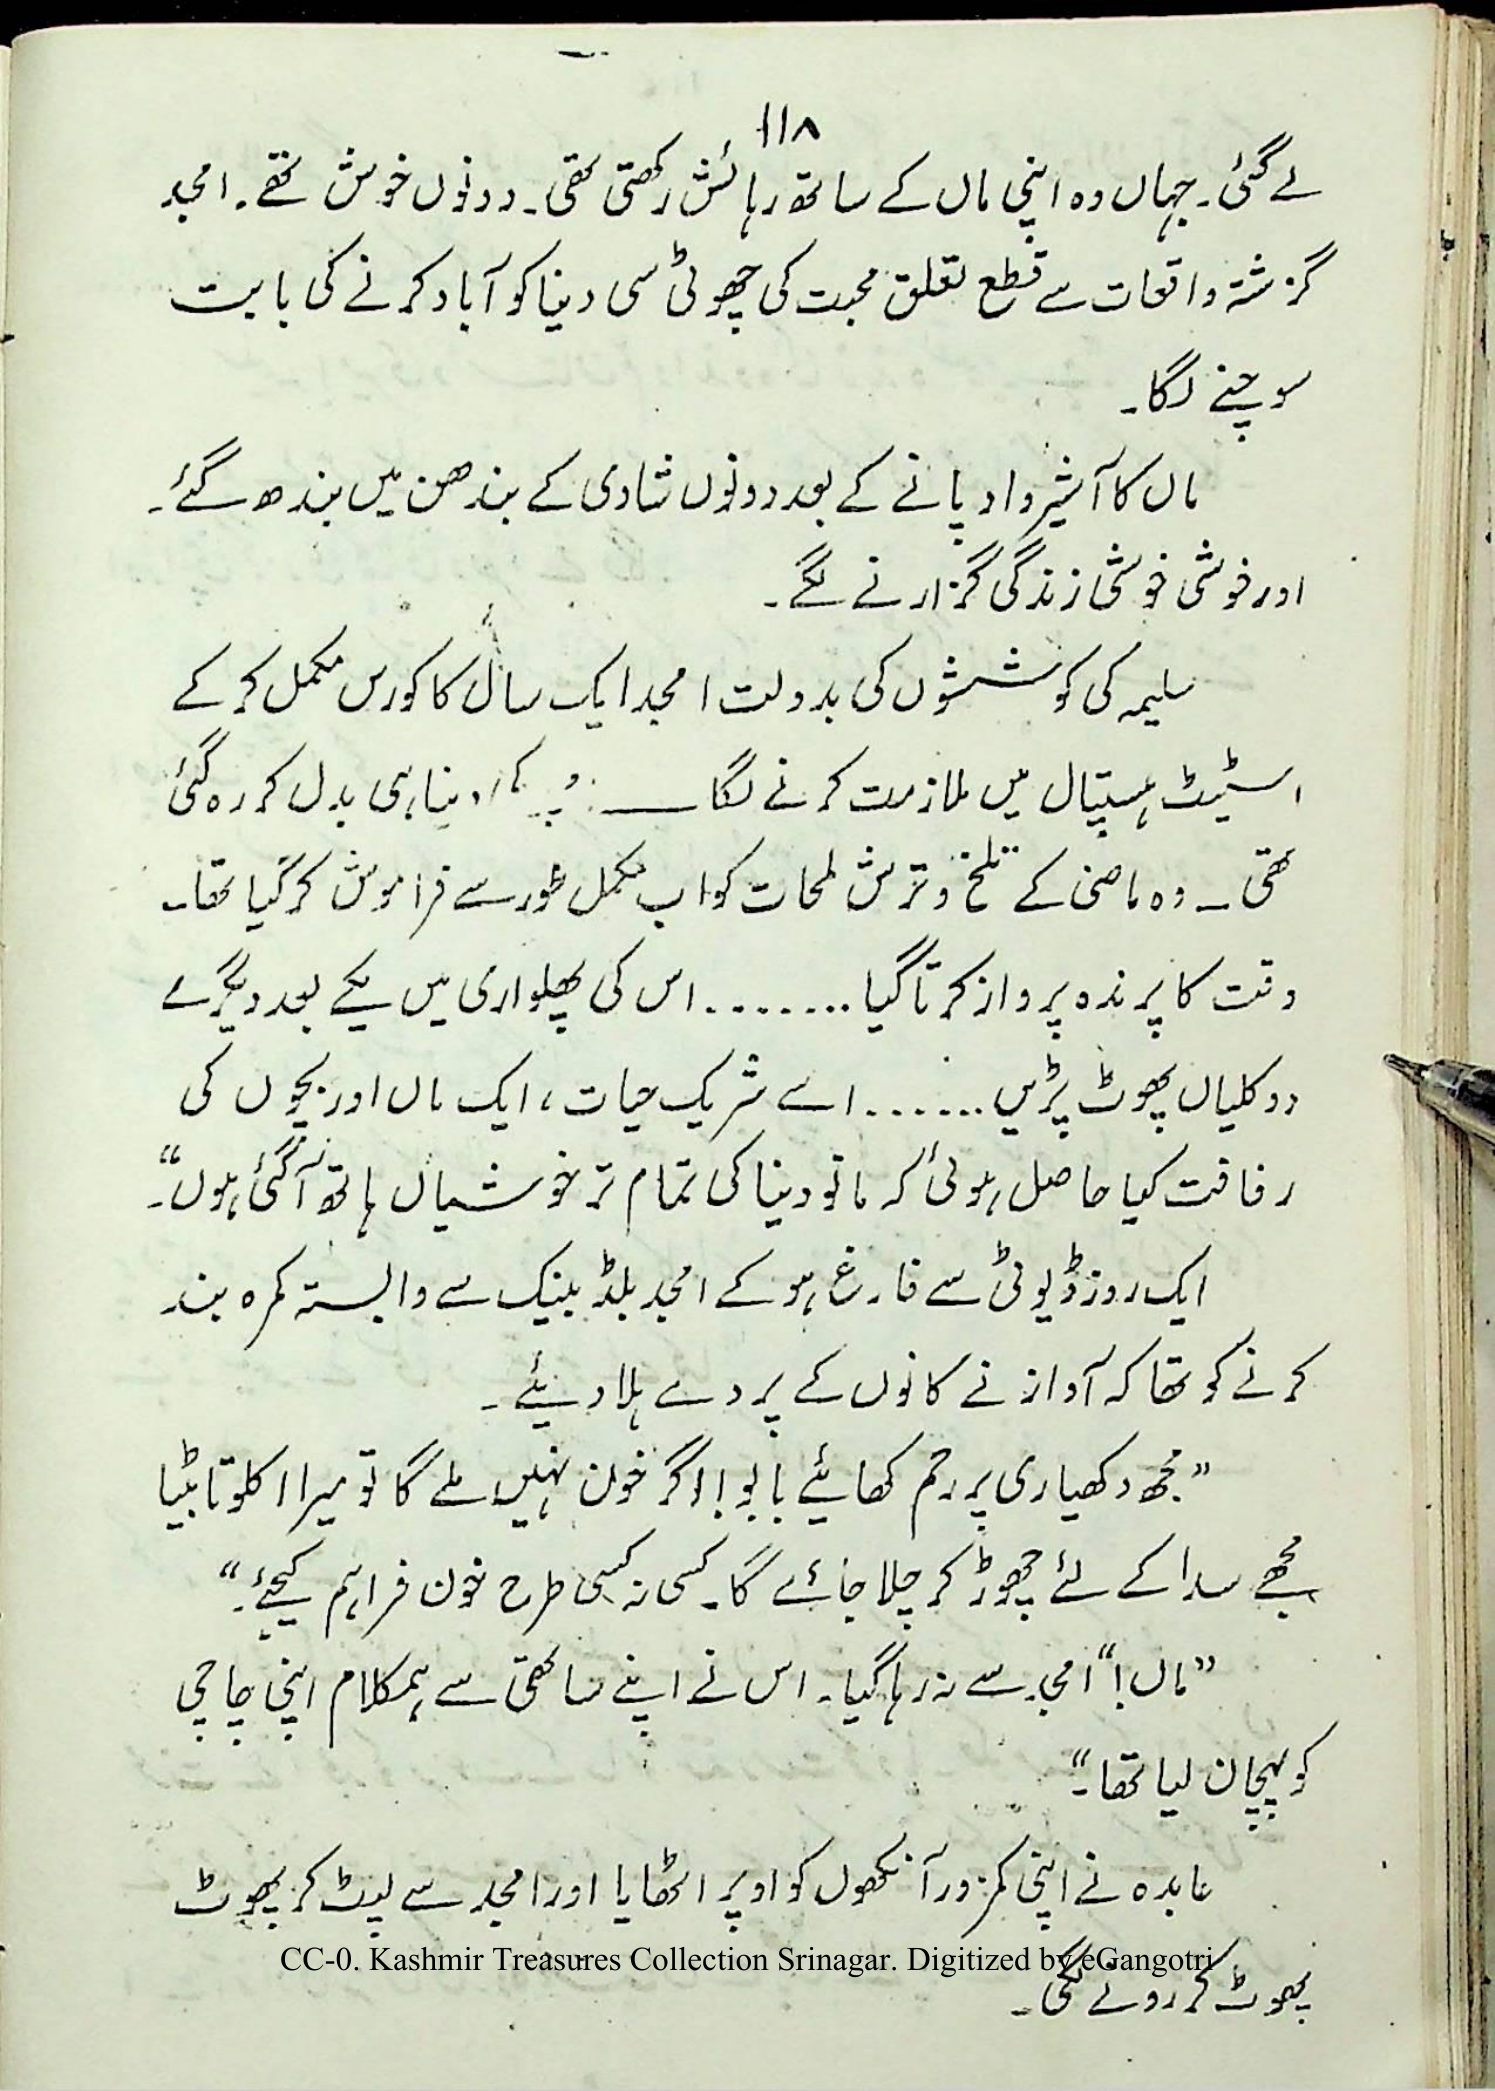 ۱۱۸
لے گئی۔ جہاں وہ اپنی ماں کے ساتھ رہائش رکھتی تھی۔ دونوں خوش تھے۔ امجد
گزشتہ واقعات سے قطع تعلق محبت کی چھوٹی سی دنیا کو آباد کرنے کی بابت
سوچنے لگا۔
ماں کا آشیرواد پانے کے بعد دونوں شادی کے بندھن میں بندھ گئے۔
اور خوشی خوشی زندگی گزارنے لگے۔
سلیمہ کی کوششوں کی بدولت امجد ایک سال کا کورس مکمل کر کے
اسٹیٹ ہسپتال میں ملازمت کرنے لگا ــــ دنیا ہی بدل کر رہ گئی
تھی۔ وہ ماضی کے تلخ و ترش لمحات کو اب مکمل طور سے فراموش کر گیا تھا۔
وقت کا پرندہ پرواز کرتا گیا ........ اس کی پھلواری میں یکے بعد دیگرے
دو کلیاں پھوٹ پڑیں ....... اسے شریک حیات، ایک ماں اور بچوں کی
رفاقت کیا حاصل ہوئی کہ مانو دنیا کی تمام تر خوشیاں ہاتھ آ گئی ہوں“۔
ایک روز ڈیوٹی سے فارغ ہو کے امجد بلڈ بینک سے وابستہ کمرہ بند
کرنے کو تھا کہ آواز نے کانوں کے پردے ہلا دیئے۔
”مجھ دکھیاری پر رحم کھائیے بابو! اگر خون نہیں ملے گا تو میرا اکلوتا بیٹا
مجھے سدا کے لئے چھوڑ کر چلا جائے گا۔ کسی نہ کسی طرح خون فراہم کیجئے۔“
”ماں!“ امجد سے نہ رہا گیا۔ اس نے اپنے ساتھی سے ہمکلام اپنی چاچی
کو پہچان لیا تھا۔“
عابدہ نے اپنی کمزور آنکھوں کو اوپر اٹھایا اور امجد سے لپٹ کر پھوٹ
پھوٹ کر رونے لگی۔
CC-0. Kashmir Treasures Collection Srinagar. Digitized by eGangotri